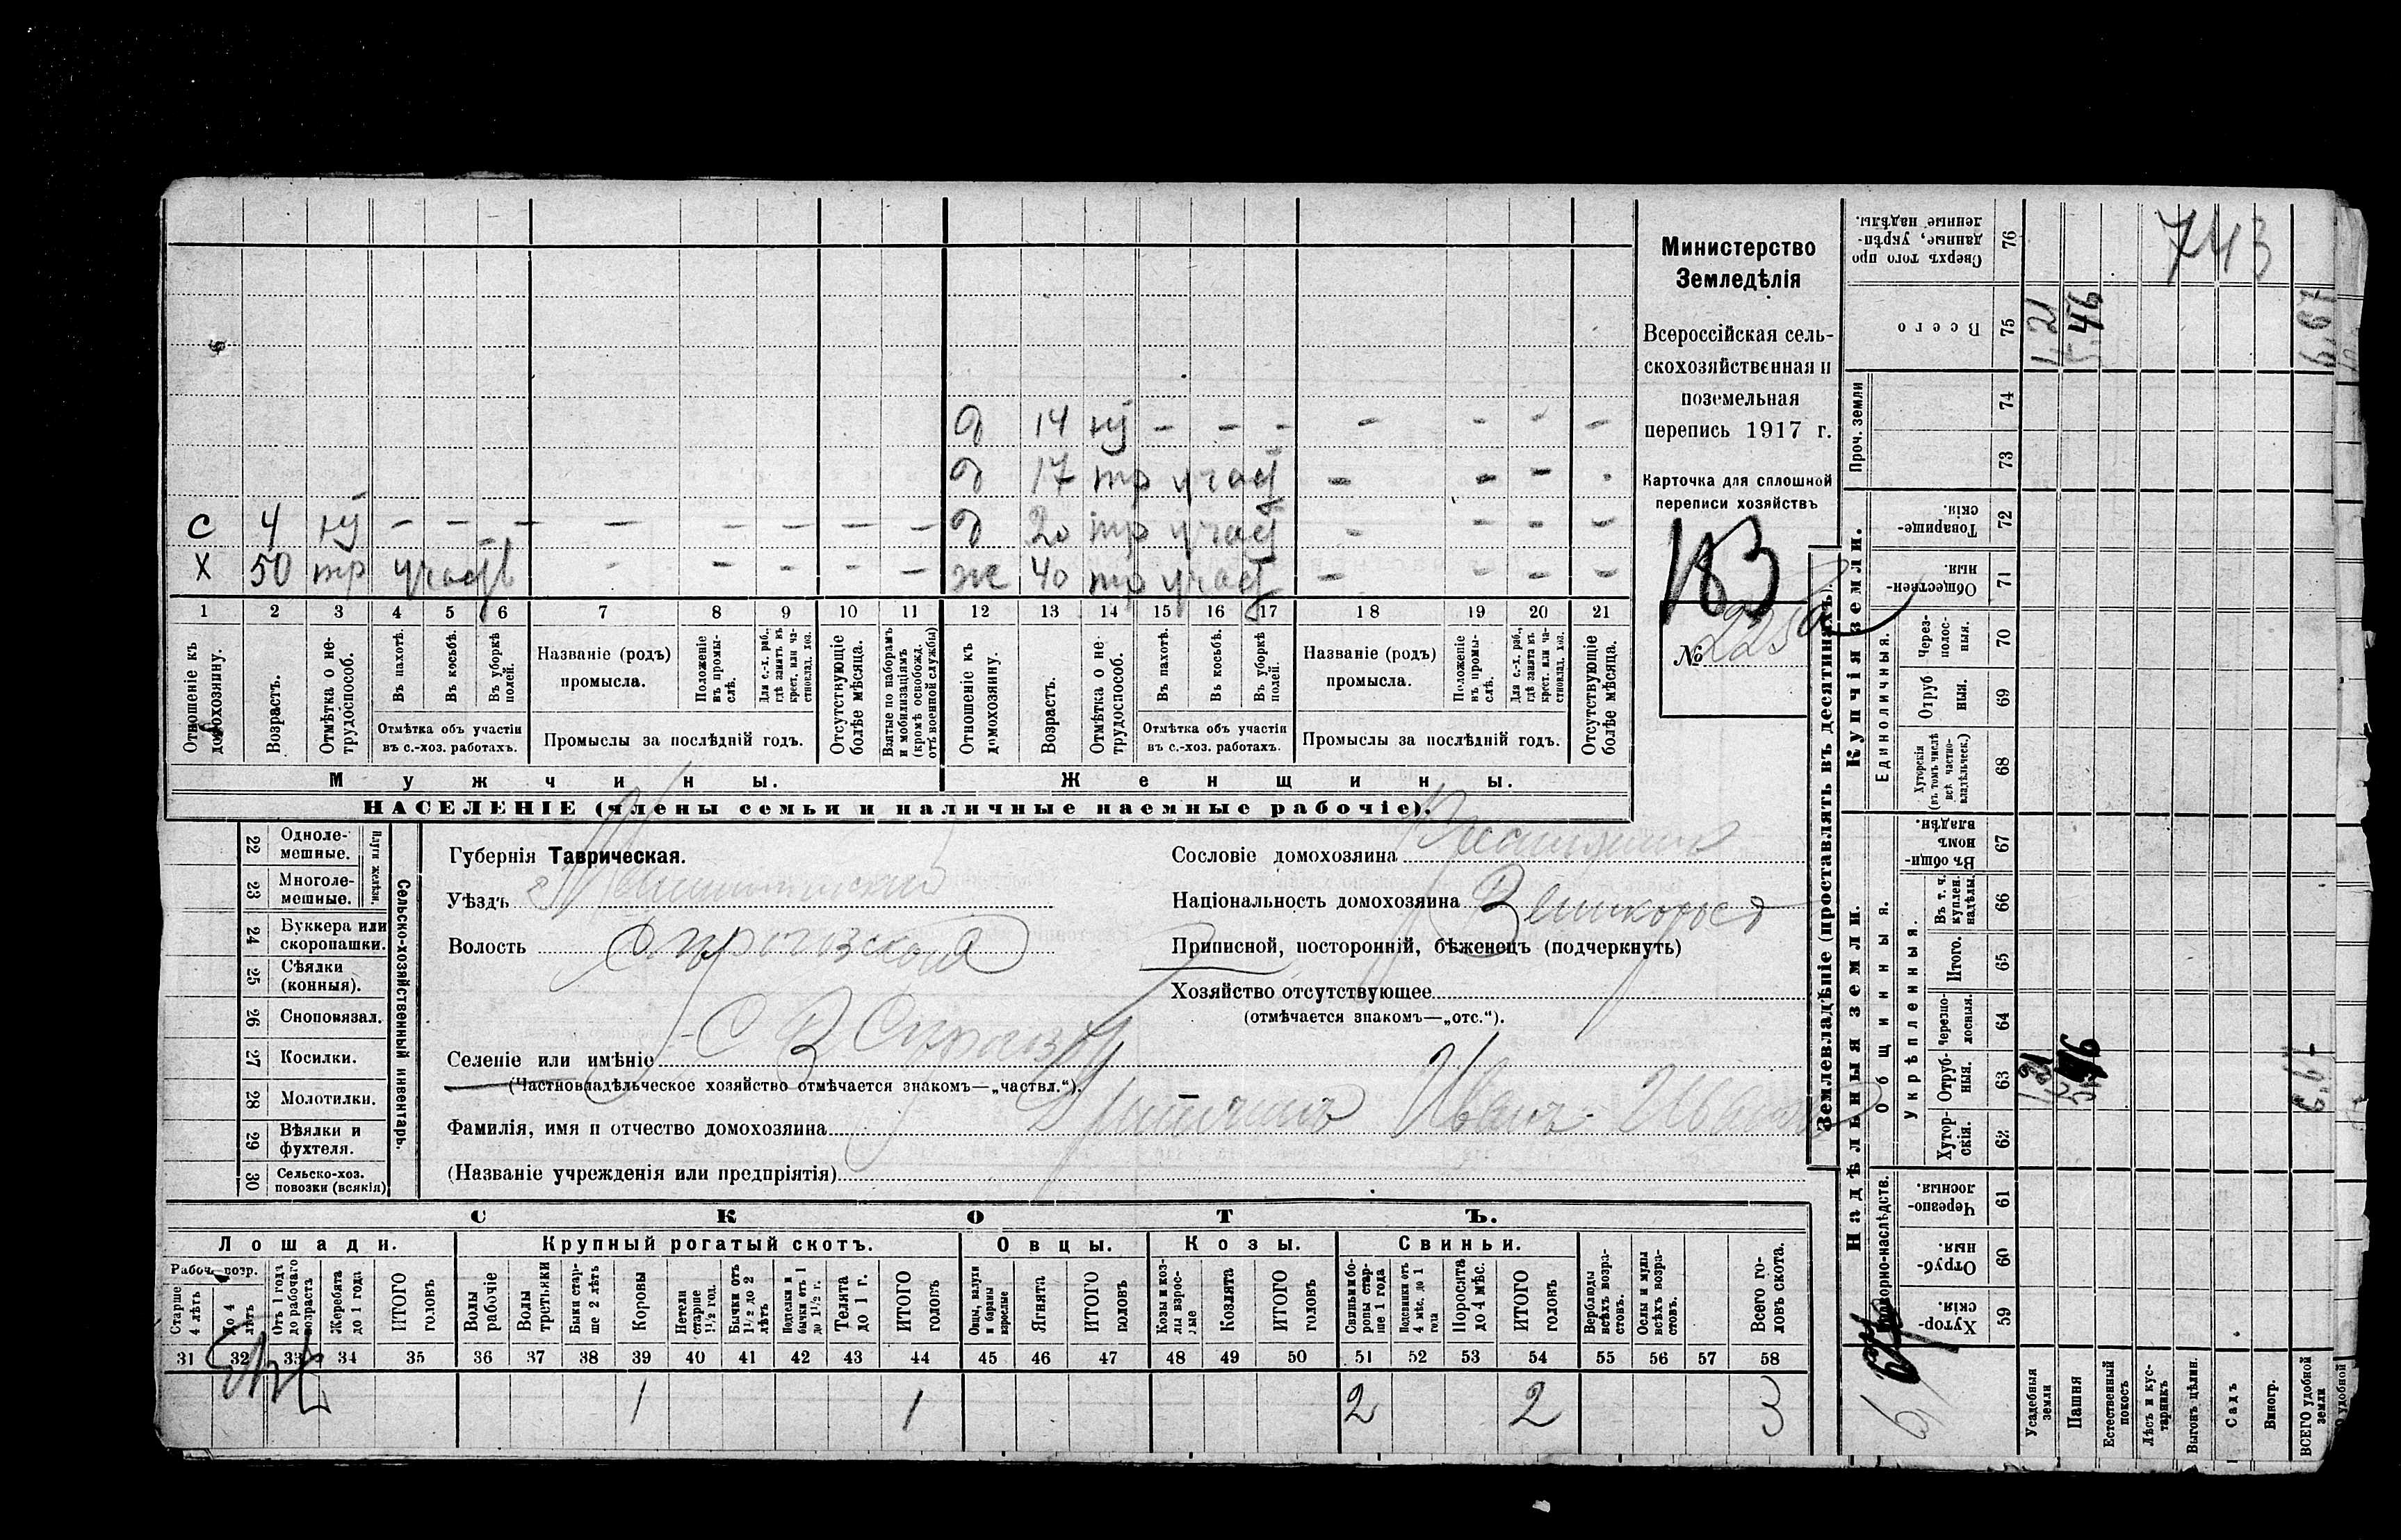 743
Министерство
Земледѣлія
Всероссійская сель-
скохозяйственная и
поземельная
перепись 1917 г.
Карточка для сплошной
переписи хозяйствъ
183
№ 225
д 14 ну – – – – – – –
д 17 тр участ – – – .
с 4 ну – – – – – – – – д 20 тр участ – – – –
х 50 тр участь - - - - – ж 40 тр участ – – – –
1 2 3 4 5 6 7 8 9 10 11 12 13 14 15 16 17 18 19 20 21
Отношеніе къ домохозяину.
Возрастъ.
Отмѣтка о не-трудоспособ.
Въ пахотѣ.
Въ косьбѣ.
Въ уборкѣ полей.
Отмѣтка объ участіи
въ с.-хоз. работахъ.
Названіе (родъ)
промысла.
Положеніе въ промы-слѣ.
Для с.-х. раб., гдѣ занятъ въ крест. или ча-стновлад. хоз.
Промыслы за послѣдній годъ.
Отсутствующіе болѣе мѣсяца.
Взятые по наборамъ и мобилизаціямъ (кромѣ освобожд. отъ военной службы)
Отношеніе къ домохозяину.
Возрастъ.
Отмѣтка о не-трудоспособ.
Въ пахотѣ.
Въ косьбѣ.
Въ уборкѣ полей.
Отмѣтка объ участіи
въ с.-хоз. работахъ.
Названіе (родъ)
промысла.
Положеніе въ промы-слѣ.
Для с.-х. раб., гдѣ занята въ крест. или ча-стновлад. хоз.
Промыслы за послѣдній годъ.
Отсутствующіе болѣе мѣсяца.
Мужчины. Женщины.
НАСЕЛЕНІЕ (члены семьи и наличные наемные рабочіе).
Сельско-хозяйственный инвентарь.
Плуги желѣзн.
22 Одноле-
мешные.
23 Многоле-
мешные.
24 Буккера или
скоропашки.
25 Сѣялки
(конныя).
26 Сноповязал.
27 Косилки.
28 Молотилки.
29 Вѣялки и
фухтеля.
30 Сельско-хоз.
повозки (всякія)
Губернія Таврическая.
Уѣздъ
Волость
Селеніе или имѣніе
(Частновладѣльческое хозяйство отмѣчается знакомъ—„частвл.“).
Фамилія, имя и отчество домохозяина Иванъ
(Названіе учрежденія или предпріятія)
Сословіе домохозяина
Національность домохозяина Великоросъ
Приписной, посторонній, бѣженецъ (подчеркнуть)
Хозяйство отсутствующее
(отмѣчается знакомъ—„отс.“).
СКОТЪ.
Лошади. Крупный рогатый скотъ. Овцы. Козы. Свиньи.
Рабоч. возр.
Старше 4 лѣтъ
До 4 лѣтъ
Отъ 1 года до рабочаго возраста
Жеребята до 1 года
ИТОГО головъ
Волы рабочіе
Волы третьяки
Быки стар-ше 2 лѣтъ
Коровы
Нетели старше 1½ год.
Бычки отъ 1½ до 2 лѣтъ
Подтелки и бычки отъ 1 до 1½ г.
Телята до 1 г.
ИТОГО головъ
Овцы, валухи и бараны взрослые
Ягнята
ИТОГО головъ
Козы и коз-лы взрос-лые
Козлята
ИТОГО головъ
Свиньи и бо-ровы стар-ше 1 года
Подсвинки отъ 4 мѣс. до 1 года
Поросята до 4 мѣс.
ИТОГО головъ
Верблюды всѣхъ возра-стовъ.
Ослы и мулы всѣхъ возра-стовъ.
Всего го-ловъ скота.
31 32 33 34 35 36 37 38 39 40 41 42 43 44 45 46 47 48 49 50 51 52 53 54 55 56 57 58
1 1 2 2 3
Землевладѣніе (проставлять въ десятинахъ).
Надѣльныя земли. Купчія земли.
Подворно-наслѣдств. Общинныя. Единоличныя. Проч. земли
Укрѣпленныя.
Хутор-скія. 59
Отруб-ныя. 60
Черезпо-лосныя. 61
Хутор-скія. 62
Отруб-ныя. 63
Черезпо-лосныя. 64
Итого. 65
Въ т. ч. куплен. надѣлы. 66
Въ общи-номъ владѣн. 67
Хуторскія (въ томъ числѣ всѣ частно-владѣльческ.) 68
Отруб ныя. 69
Через-полос-ныя. 70
Обществен-ныя. 71
Товарище-скія. 72
73
74
Всего 75
Сверхъ того про данные, укрѣп-ленные надѣлы. 76
Усадебныя земли 1,21 1,21
Пашня 5,46 5,46
Естественный покосъ
Лѣсъ и кус-тарникъ
Выгонъ цѣлин.
Садъ
Виногр.
ВСЕГО удобной земли 6,67 6,67